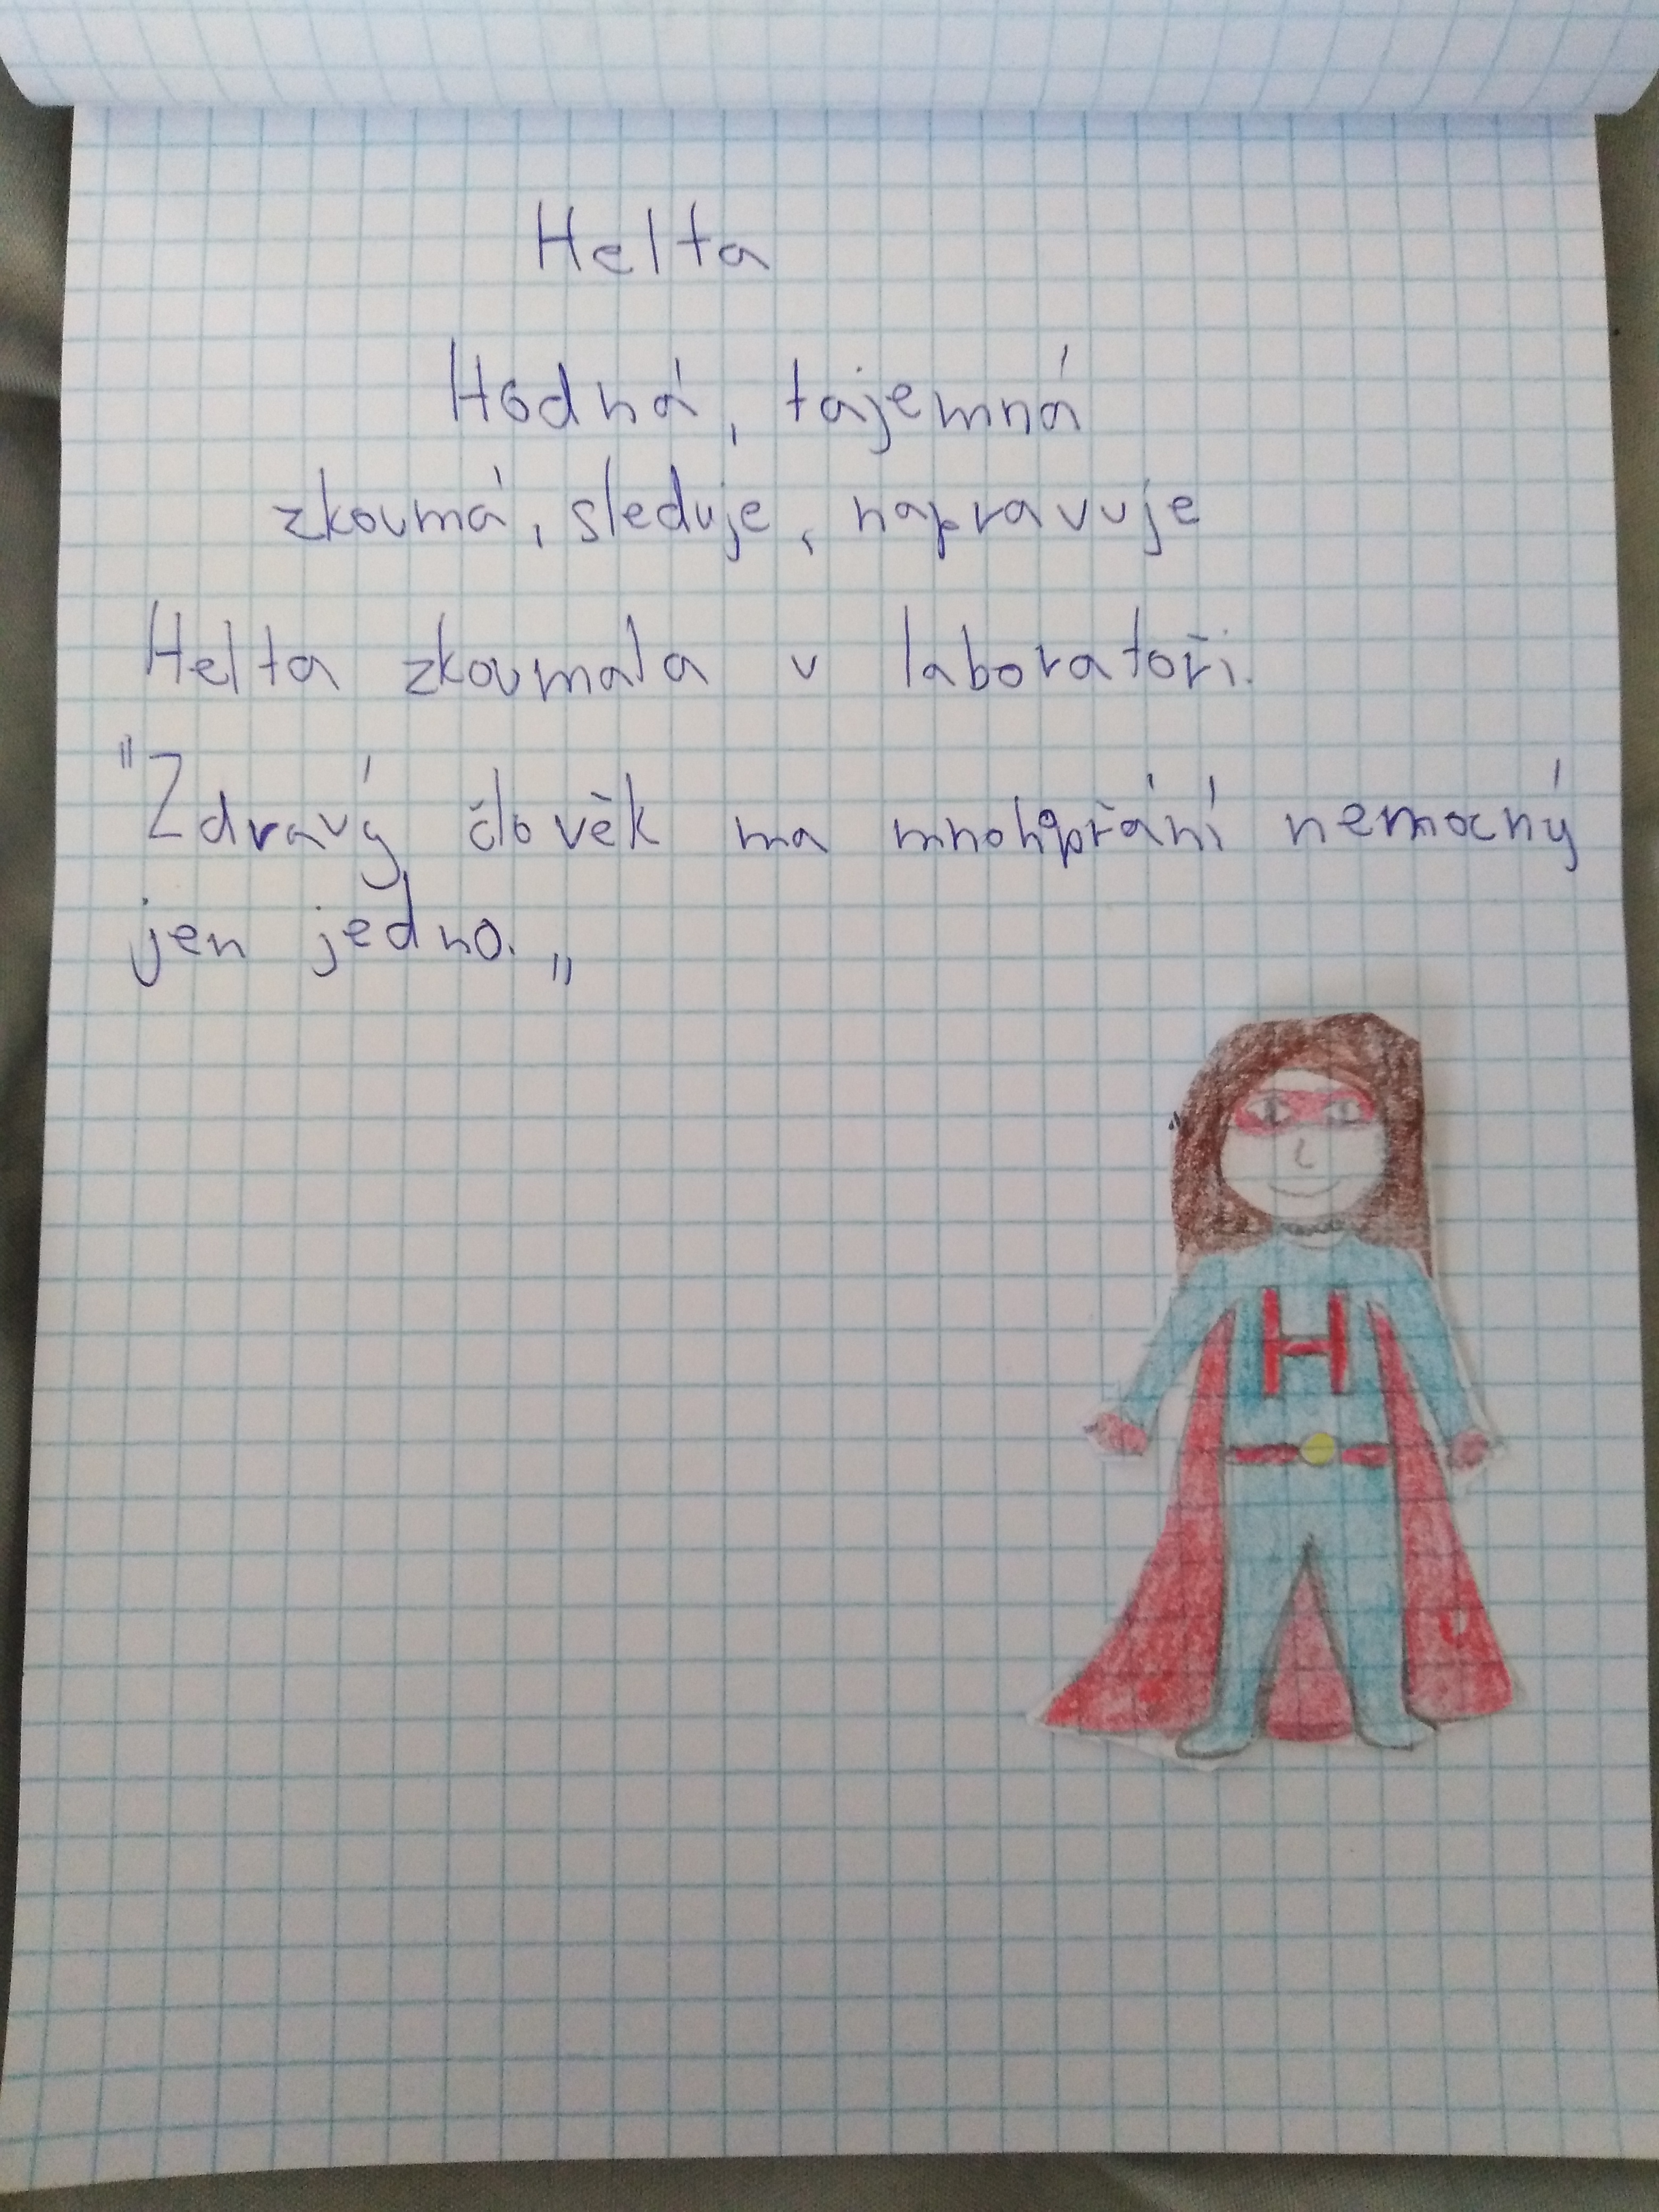 Helta
Hodná, tajemná
zkoumá, sleduje, napravuje
Helta zkoumala v laboratoři.
"Zdravý člověk ma mnohopřání nemocný
jen jedno.„
H